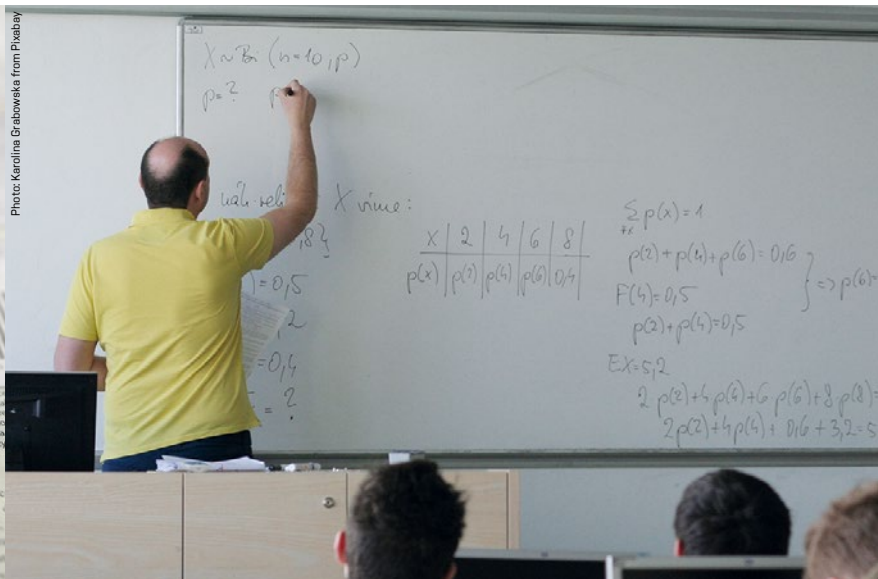 Photo: Karolina Grabowska from Pixabay
X ~ Bi (n=10, p)
p=? p
X víme:
,8}
) = 0,5
,2
=0,4
= ?
x | 2 | 4 | 6 | 8 |
p(x) | p(2) | p(4) | p(6) | 0,4 |
∑ p(x) = 1
p(2) + p(4) + p(6) = 0,6
F(4) = 0,5
} => p(6)=
p(2) + p(4) = 0,5
EX = 5,2
2 p(2) + 4 p(4) + 6 p(6) + 8 p(8) =
2p(2) + 4p(4) + 0,6 + 3,2 = 5